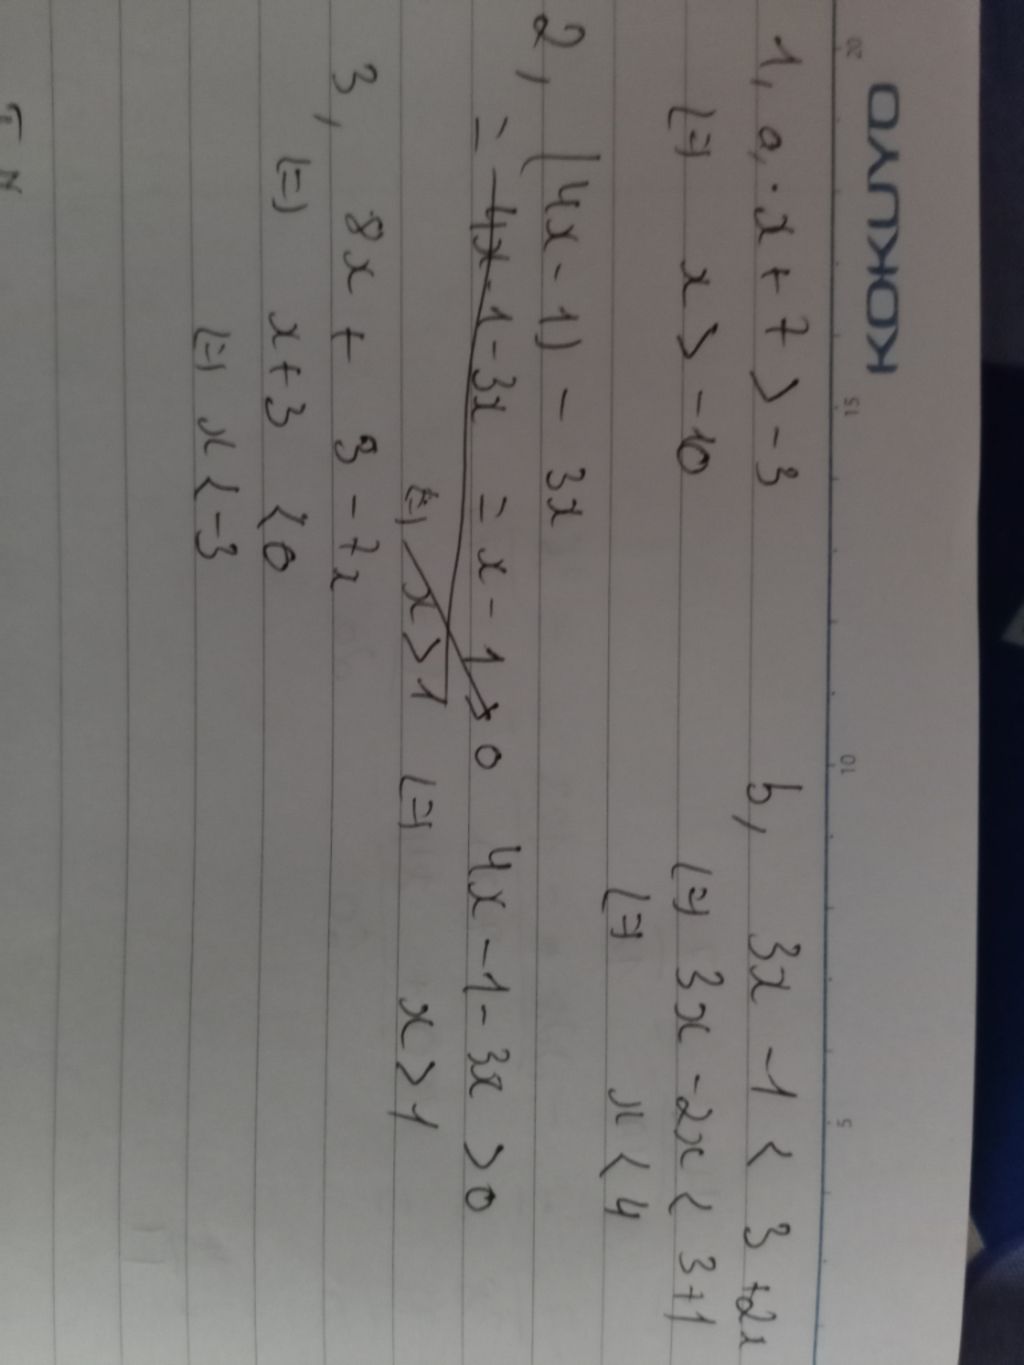 KOKUYO
20 15 10 5
1, a, . x + 7 > -3
b, 3x - 1 < 3 + 2x
(=) x > -10
(=) 3x - 2x < 3 + 1
(=) x < 4
2, (4x - 1) - 3x
= 4x - 1 - 3x = x - 1 > 0
4x - 1 - 3x > 0
(=) x > 1
(=) x > 1
3, 8x + 3 - 7x
(=) x + 3 < 0
(=) x < -3